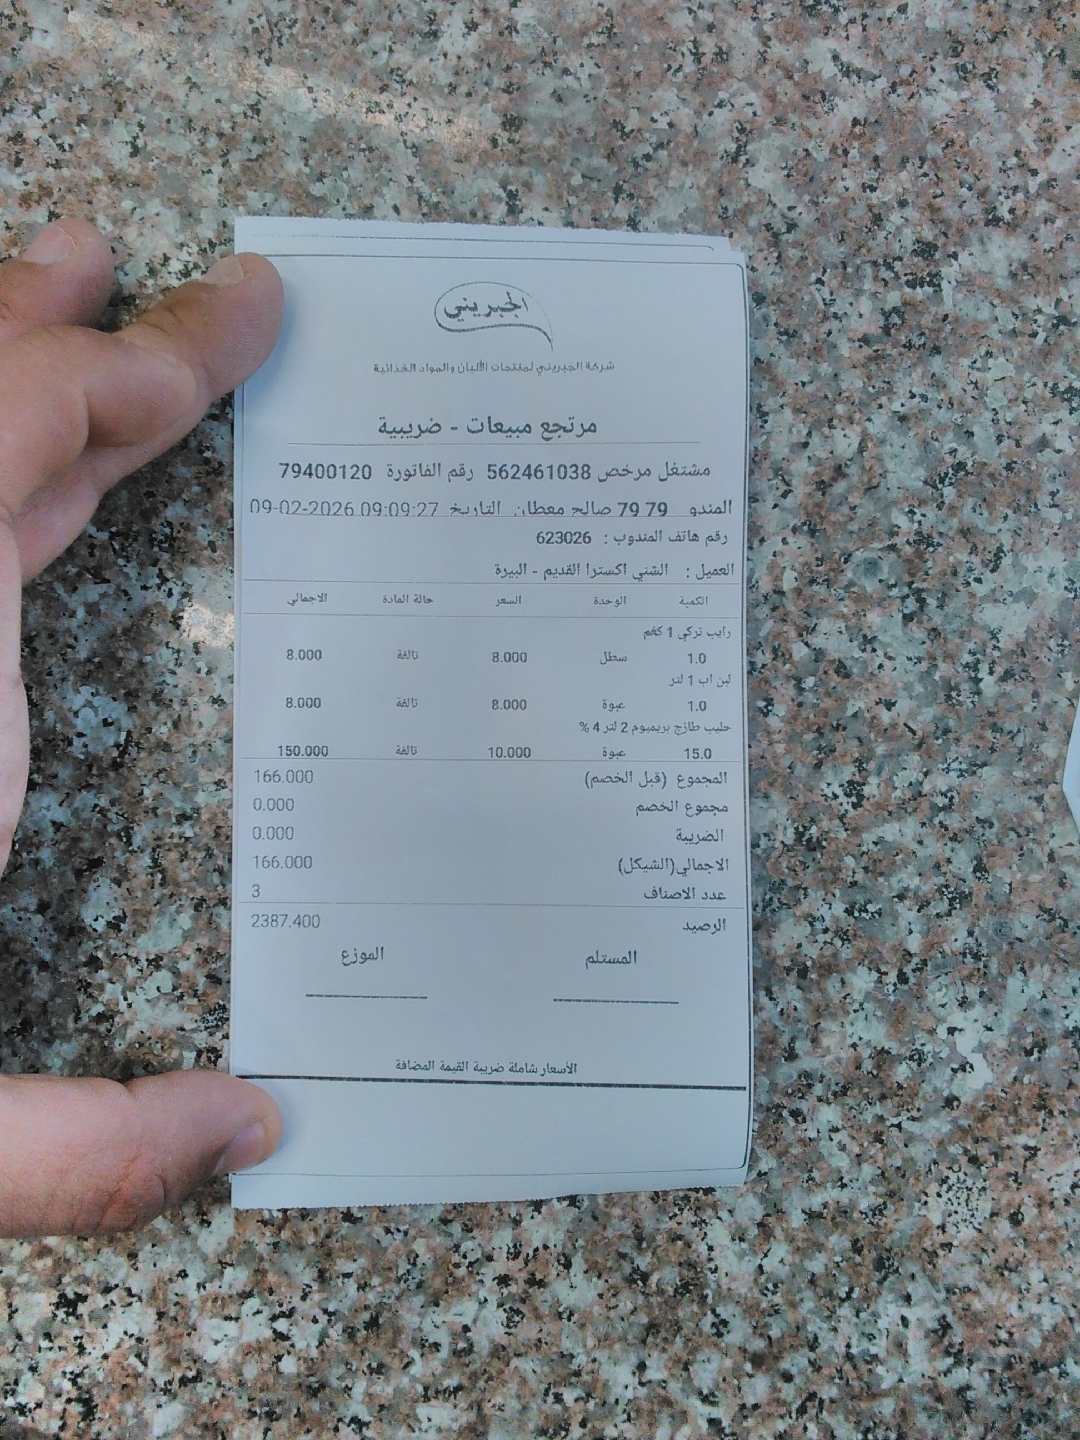 الجبريني
شركة الجبريني لمنتجات الألبان والمواد الغذائية
مرتجع مبيعات - ضريبية
مشتغل مرخص 562461038 رقم الفاتورة 79400120
المندو 79 79 صالح معطان التاريخ 09-02-2026 09:09:27
رقم هاتف المندوب : 623026
العميل : الشني اكسترا القديم - البيرة
الكمية الوحدة السعر حالة المادة الاجمالي
رايب تركي 1 كغم
1.0 سطل 8.000 تالفة 8.000
لبن اب 1 لتر
1.0 عبوة 8.000 تالفة 8.000
حليب طازج بريميوم 2 لتر 4 %
15.0 عبوة 10.000 تالفة 150.000
المجموع (قبل الخصم) 166.000
مجموع الخصم 0.000
الضريبة 0.000
الاجمالي(الشيكل) 166.000
عدد الاصناف 3
الرصيد 2387.400
المستلم الموزع
الأسعار شاملة ضريبة القيمة المضافة